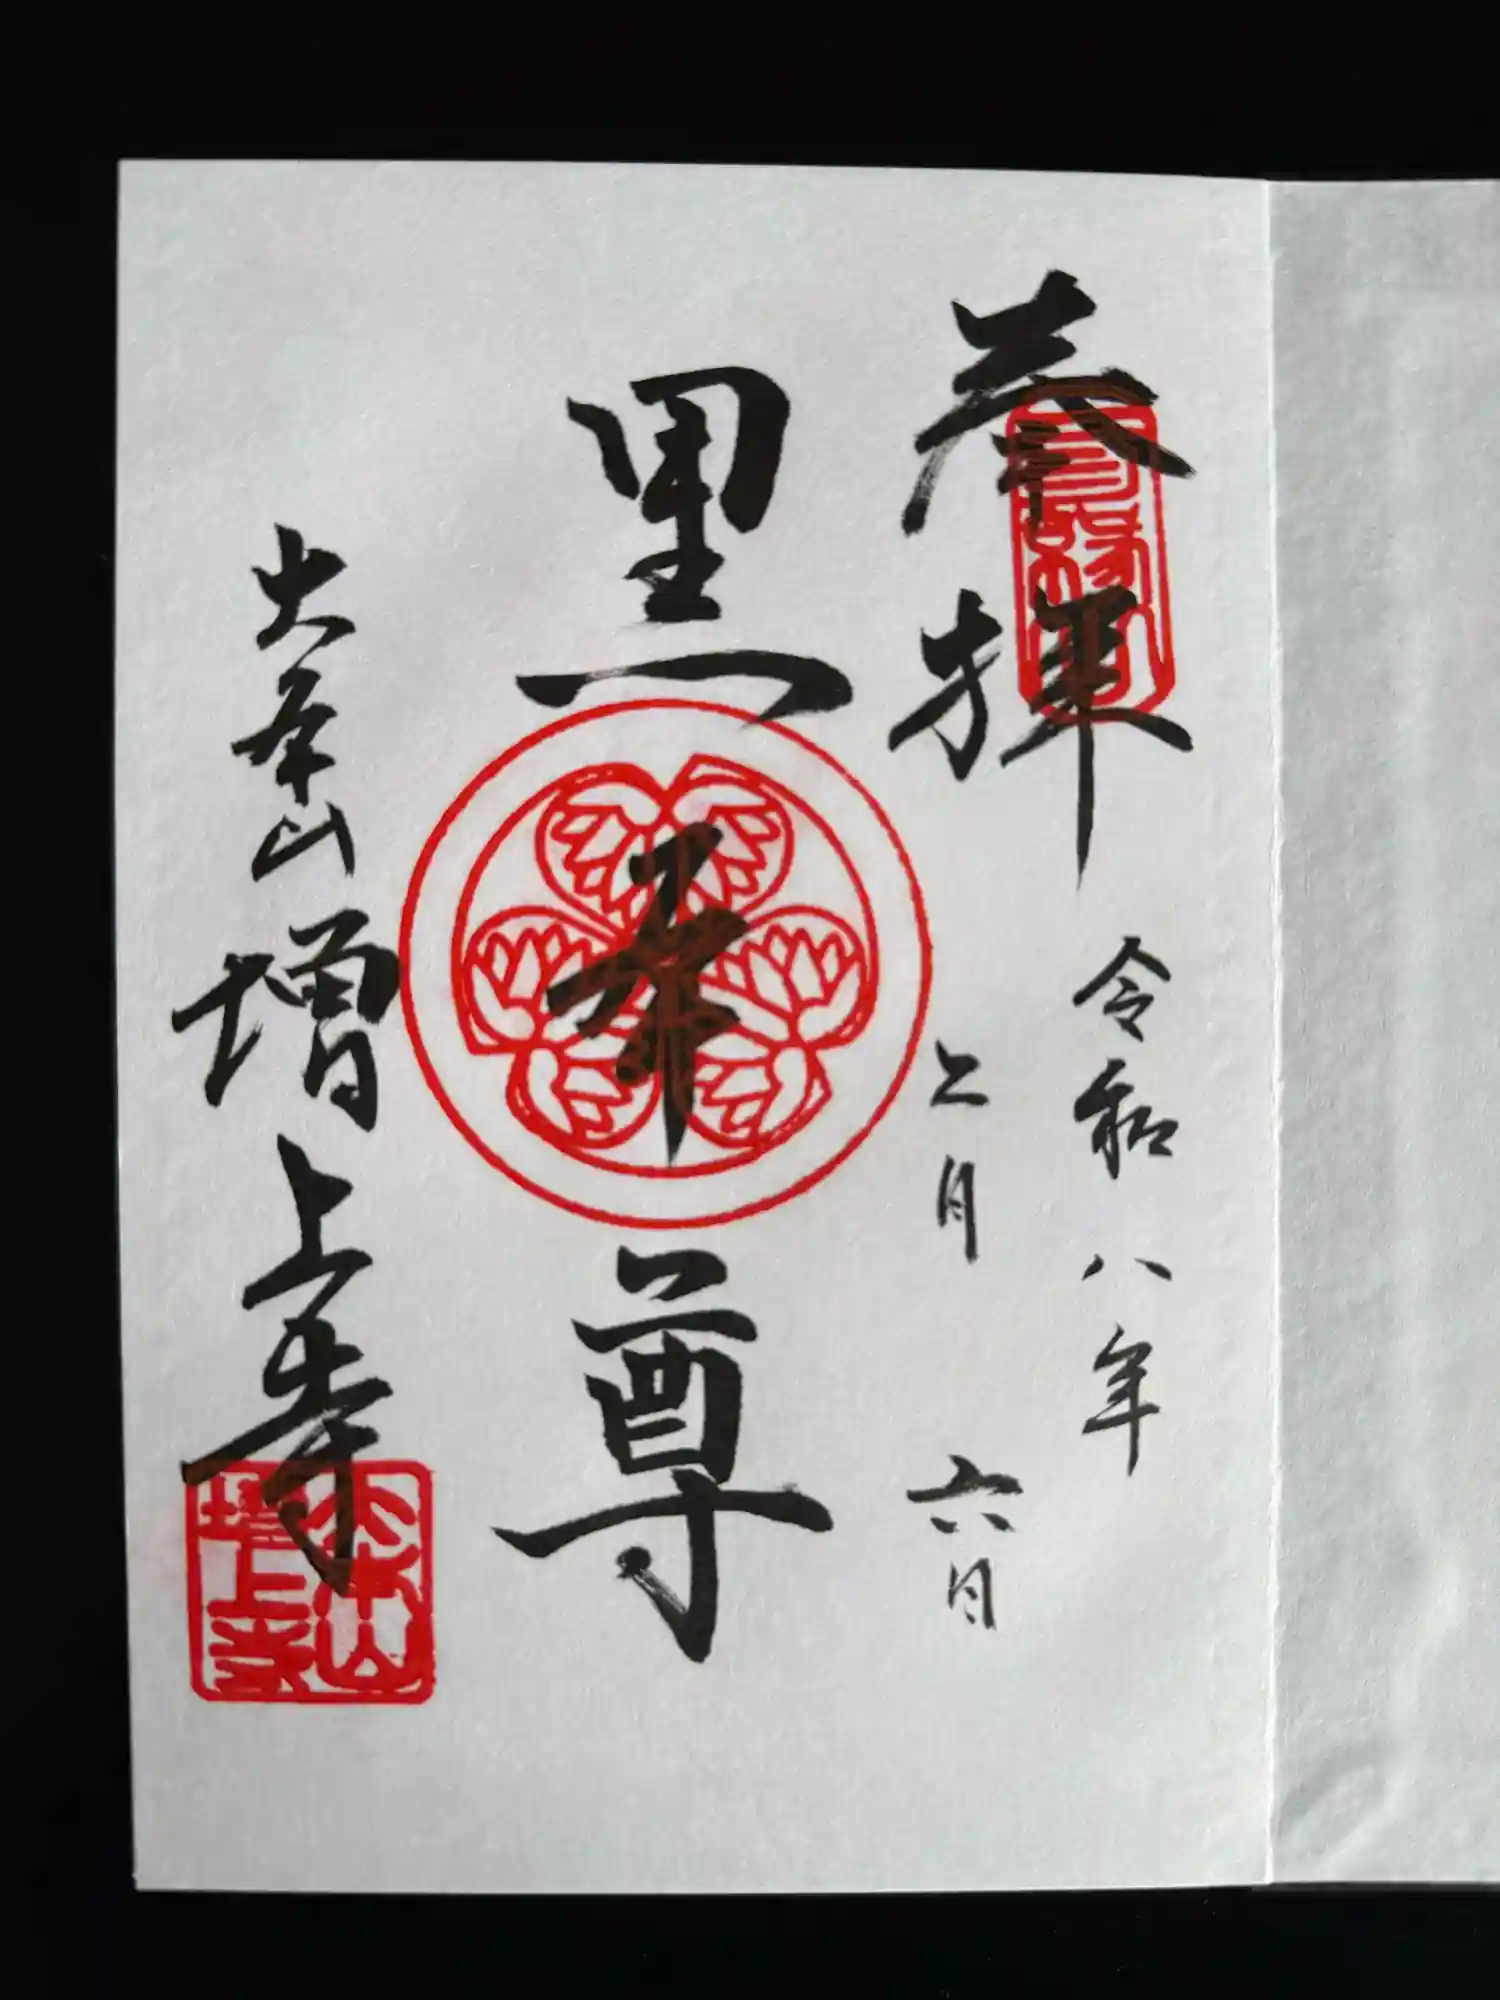 奉拝
三縁山
令和八年
二月 六日
黒本尊
大本山 増上寺
大本山
増上寺